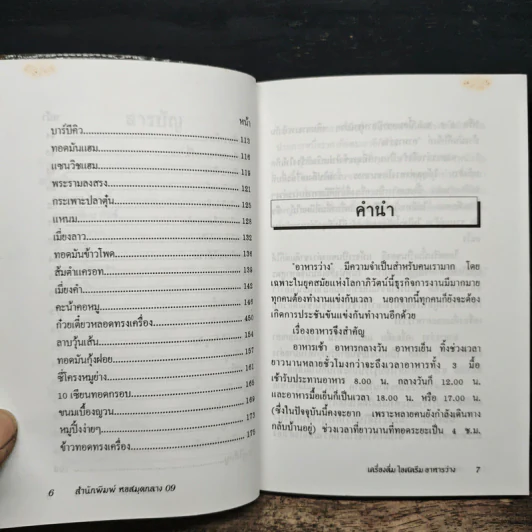 หน้า
บาร์บีคิว 115
ทอดมันแฮม 116
แซนวิชแฮม 119
พระรามลงสรง 121
กระเพาะปลาตุ๋น 124
แหนม 129
เมี่ยงลาว 132
ทอดมันข้าวโพด 136
ส้มตำแครอท 138
เมี่ยงคำ 143
คะน้าคอหมู
ก๋วยเตี๋ยวหลอดทรงเครื่อง 150
ลาบวุ้นเส้น 154
ทอดมันกุ้งฝอย 157
ซี่โครงหมูย่าง 161
10 เซียนทอดกรอบ 165
ขนมเบื้องญวน 169
หมูปิ้งง่ายๆ 173
ข้าวทอดทรงเครื่อง 175
6 สำนักพิมพ์ หอสมุดกลาง 09
คำนำ
"อาหารว่าง" มีความจำเป็นสำหรับคนเรามาก โดย
เฉพาะในยุคสมัยแห่งโลกาภิวัตน์นี้ธุรกิจการงานมีมากมาย
ทุกคนต้องทำงานแข่งกับเวลา นอกจากนี้ทุกคนก็ยังจะต้อง
เกิดการประชันขันแข่งกันทำงานอีกด้วย
เรื่องอาหารจึงสำคัญ
อาหารเช้า อาหารกลางวัน อาหารเย็น ทิ้งช่วงเวลา
ยาวนานหลายชั่วโมงกว่าจะถึงเวลาอาหารทั้ง 3 มื้อ
เช้ารับประทานอาหาร 8.00 น. กลางวันก็ 12.00 น.
และอาหารมื้อเย็นก็เป็นเวลา 16.00 น. หรือ 17.00 น.
(ซึ่งในปัจจุบันนี้คงจะยาก เพราะหลายคนยังกำลังเดินทาง
กลับบ้านอยู่) ช่วงเวลาที่ยาวนานที่ทอดระยะเป็น 4 ช.ม.
เครื่องดื่ม ไอศครีม อาหารว่าง 7